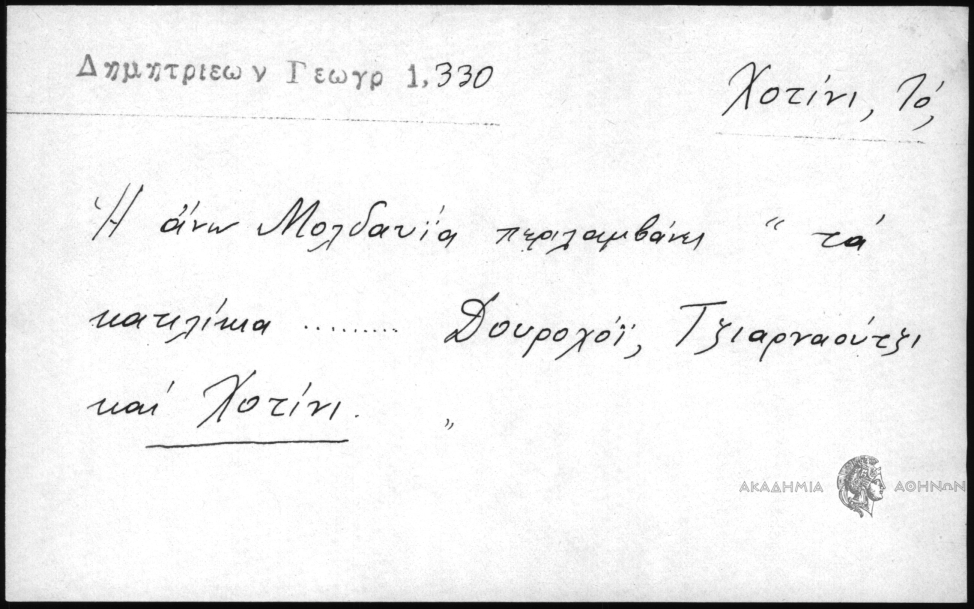 Δημητριεων Γεωγρ 1,330
Χοτίνι, τό,
Ἡ ἄνω Μολδαυΐα περιλαμβάνει " τά
κατιλίκια ......... Δουροχόϊ, Τζιαρναούτζι
καί Χοτίνι. "
ΑΚΑΔΗΜΙΑ ΑΘΗΝΩΝ